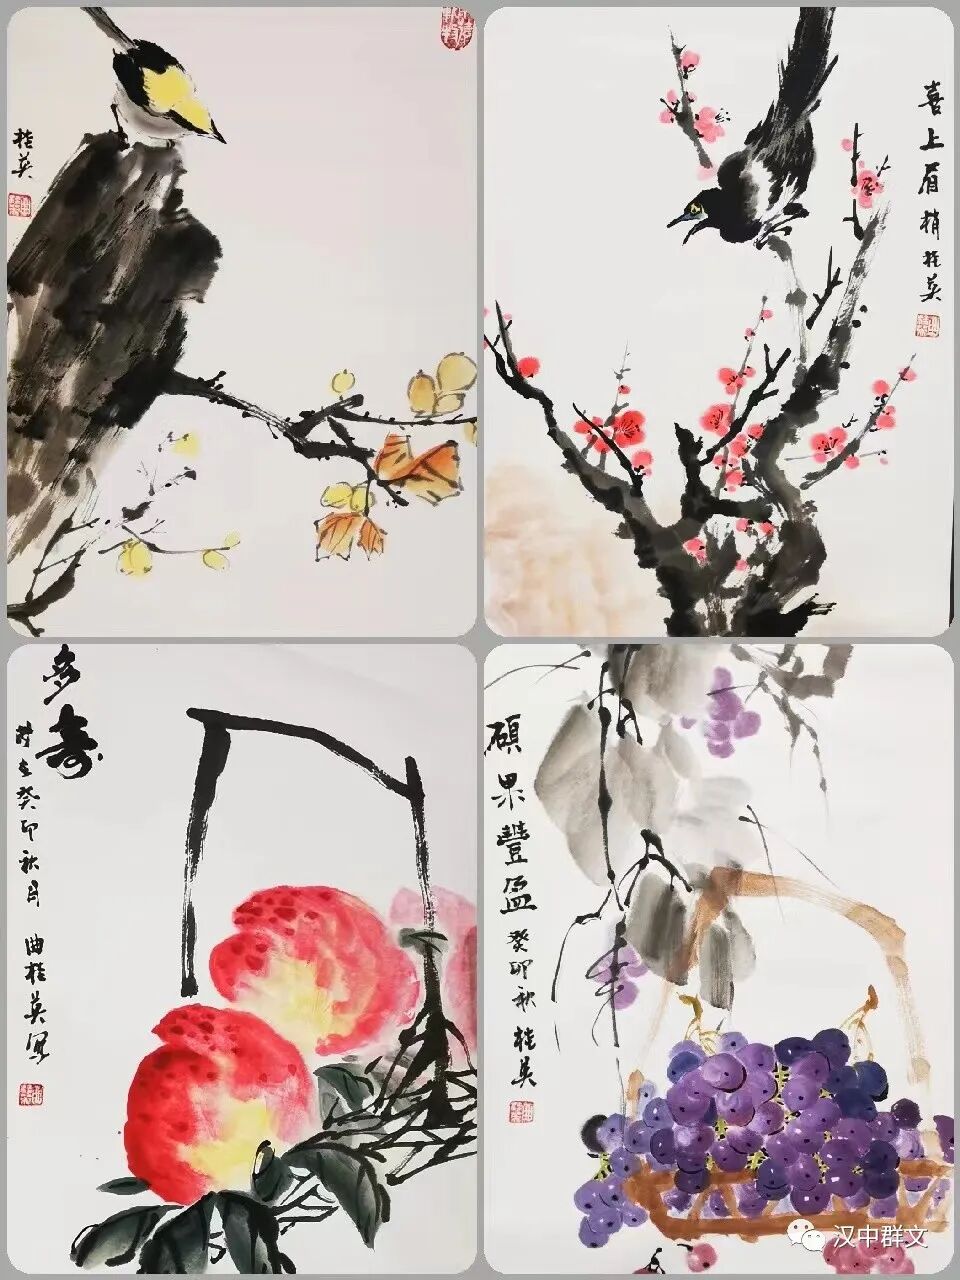 桂英
喜上眉梢 桂英
多寿
时在癸卯秋月 曲桂英写
硕果豐盈 癸卯秋 桂英
汉中群文